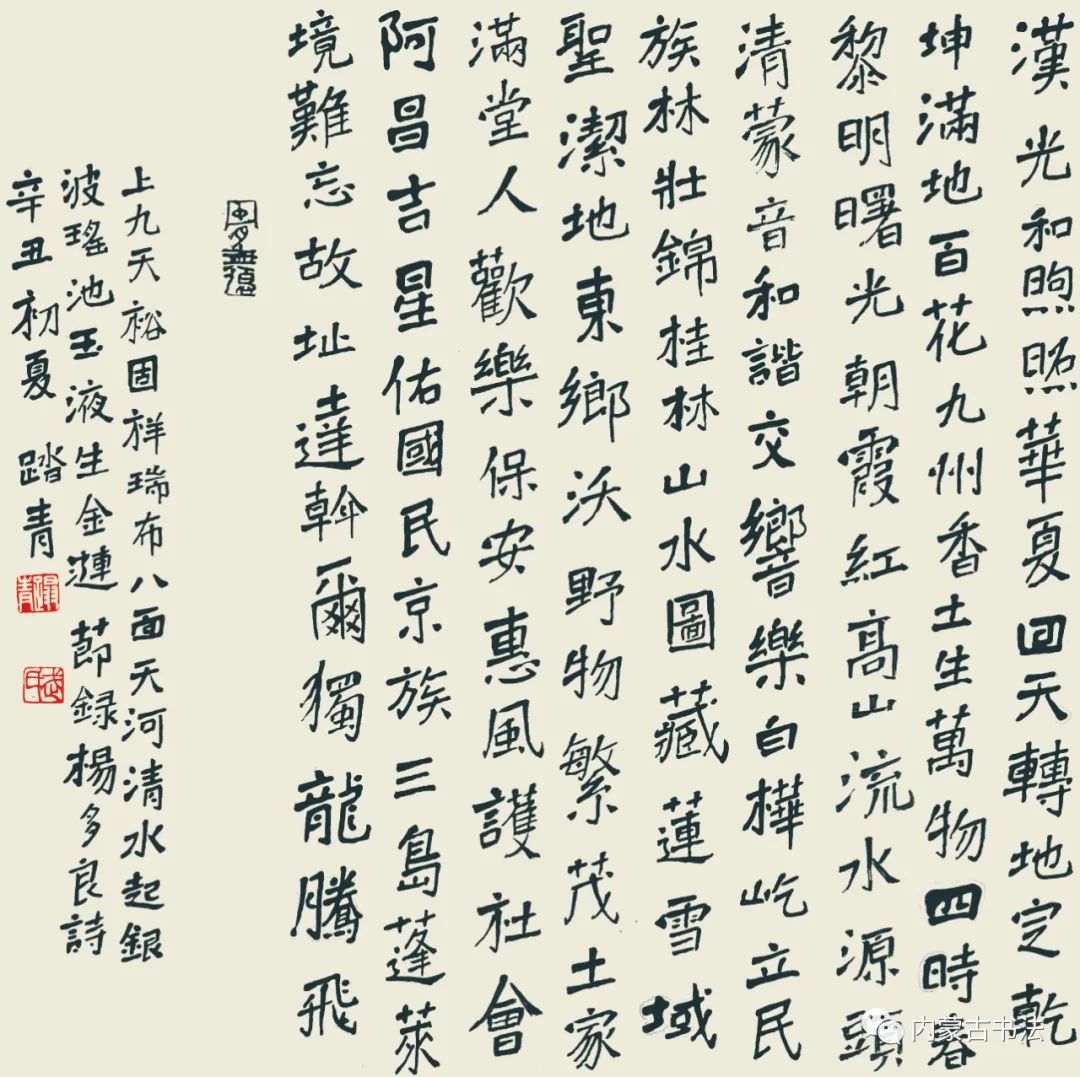 漢光和煦照華夏回天轉地定乾
坤滿地百花九州香土生萬物四時春
黎明曙光朝霞紅高山流水源頭
清蒙音和諧交響音樂白樺屹立民
族林壯錦桂林山水圖藏蓮雪域
聖潔地東鄉沃野物繁茂土家
滿堂人歡樂保安惠風護社會
阿昌吉星佑國民京族三島蓬萊
境難忘故址達斡爾獨龍騰飛
上九天裕固祥瑞布八面天河清水起銀
波瑤池玉液生金漣節録楊多良詩
辛丑初夏踏青
内蒙古书法